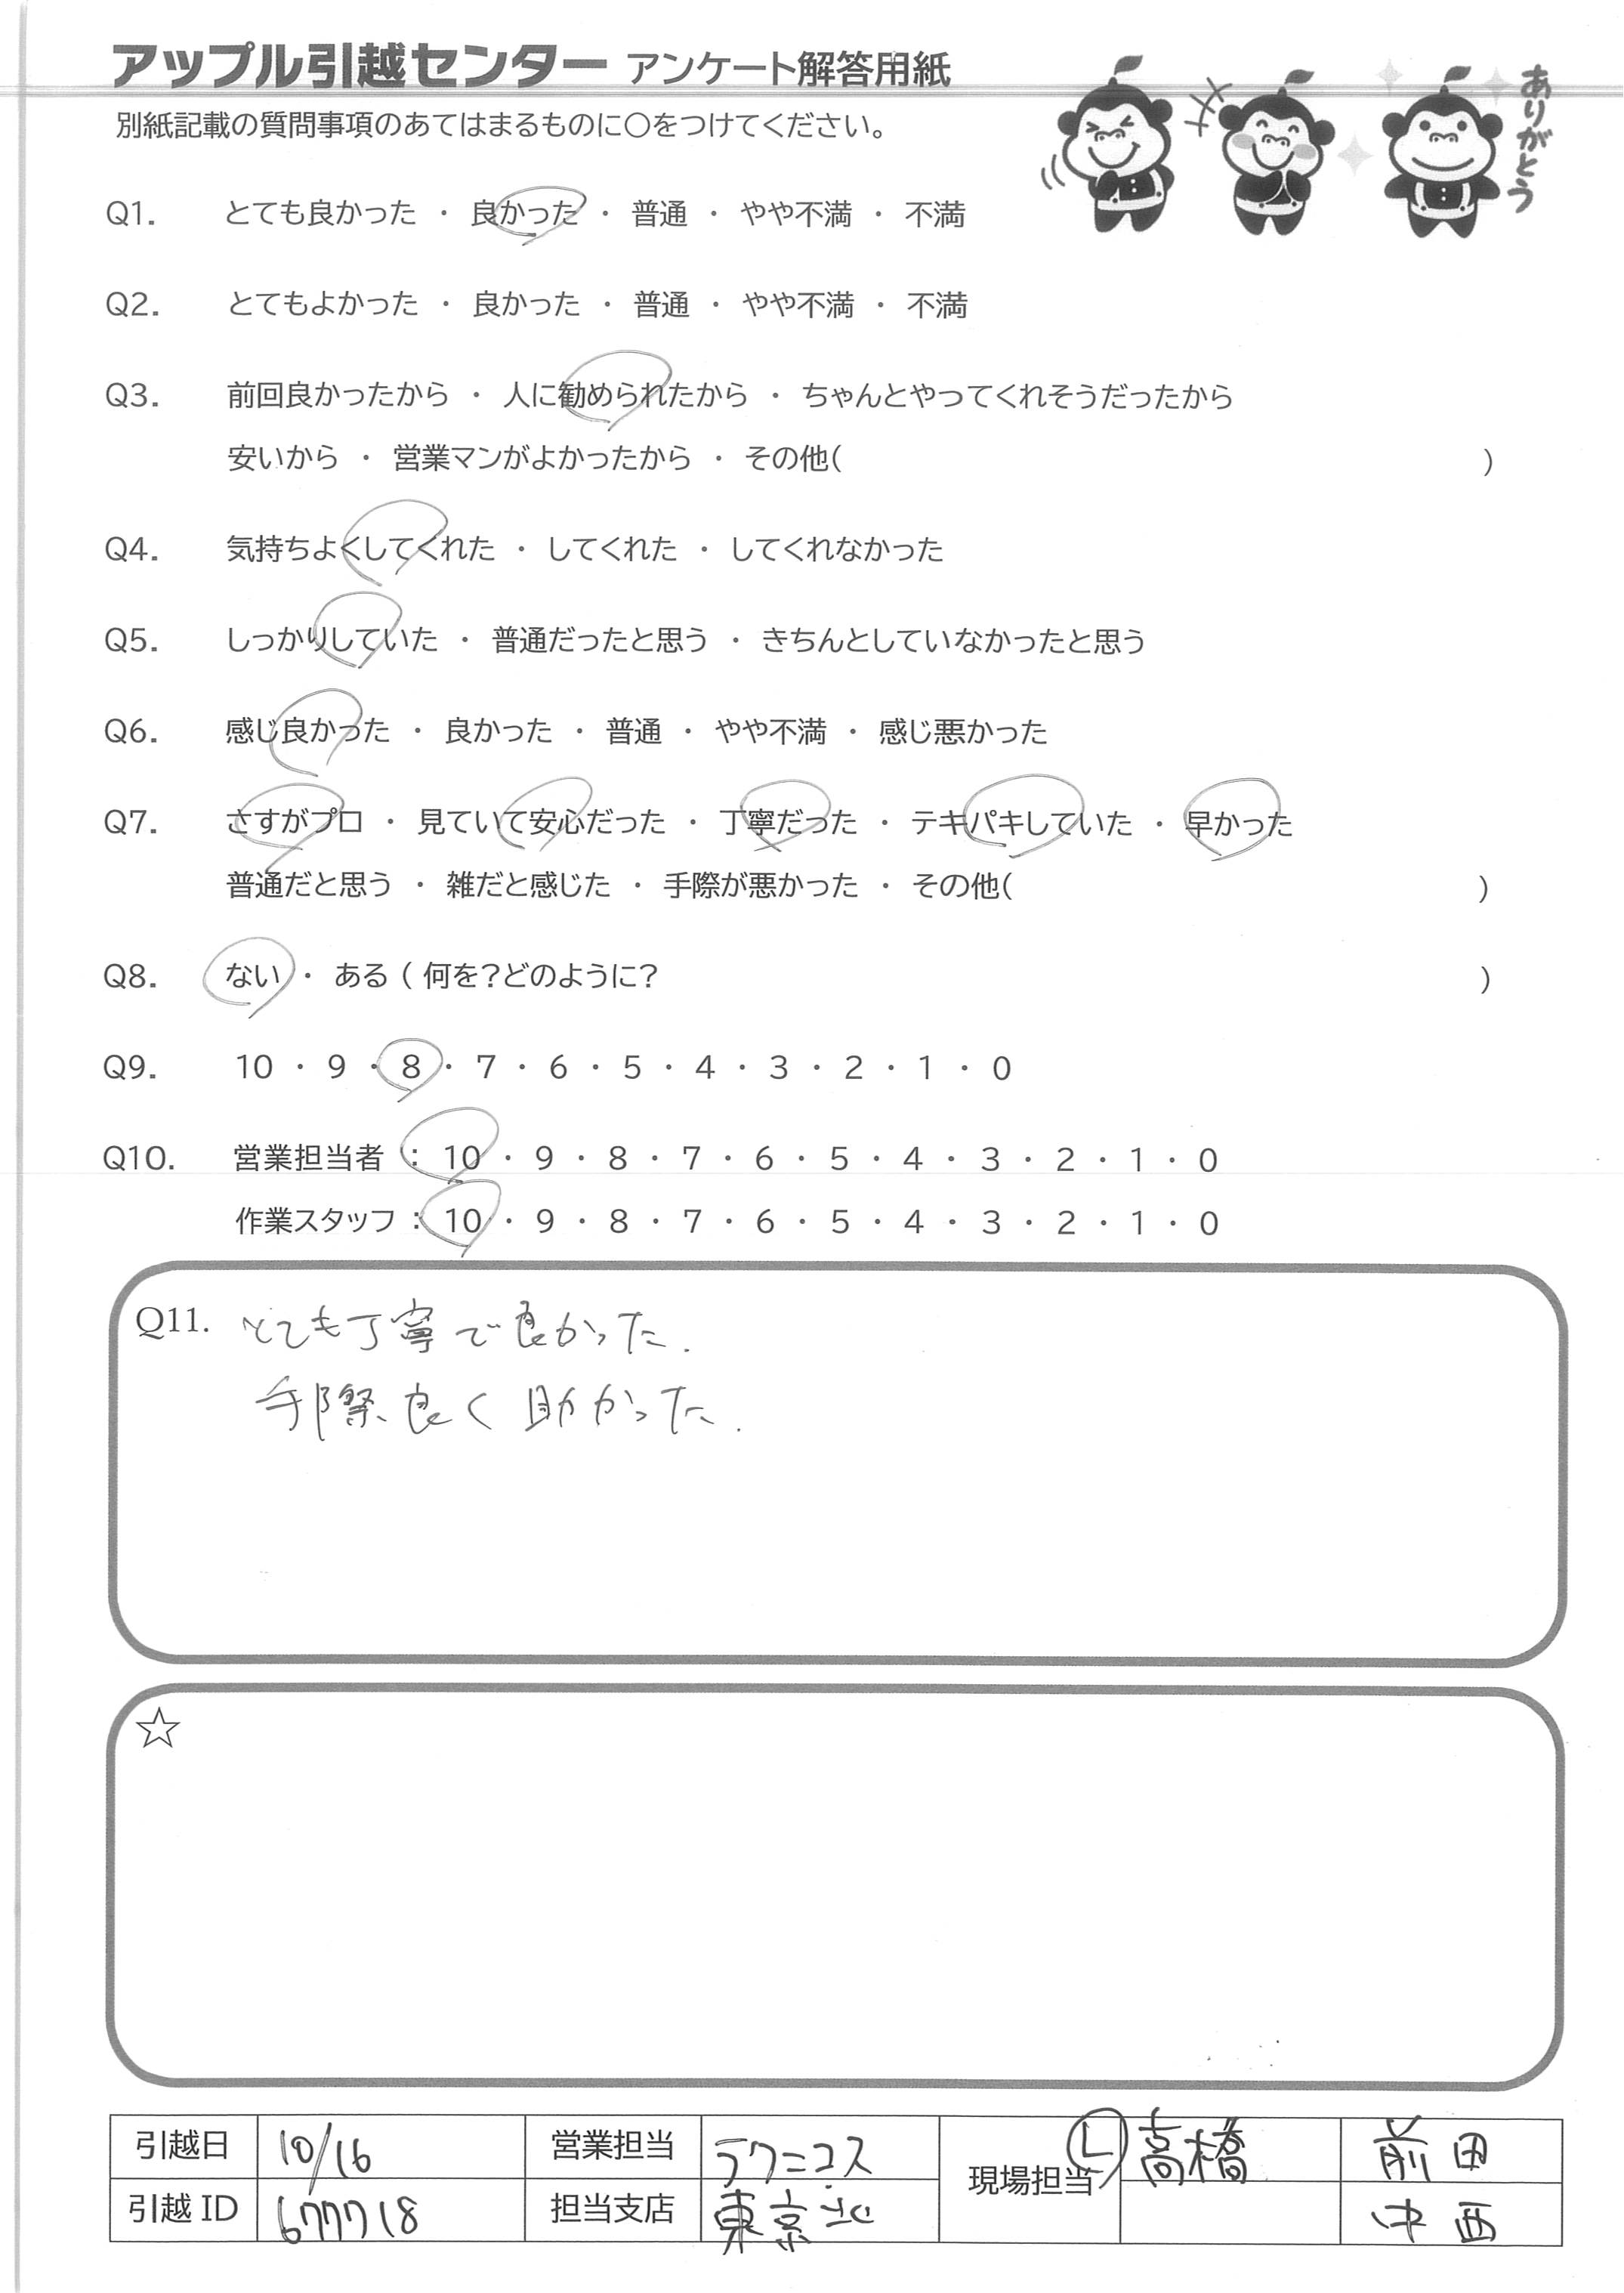 アップル引越センター アンケート解答用紙
ありがとう
別紙記載の質問事項のあてはまるものに〇をつけてください。
Q1. とても良かった ・ 良かった ・ 普通 ・ やや不満 ・ 不満
Q2. とてもよかった ・ 良かった ・ 普通 ・ やや不満 ・ 不満
Q3. 前回良かったから ・ 人に勧められたから ・ ちゃんとやってくれそうだったから
安いから ・ 営業マンがよかったから ・ その他( )
Q4. 気持ちよくしてくれた ・ してくれた ・ してくれなかった
Q5. しっかりしていた ・ 普通だったと思う ・ きちんとしていなかったと思う
Q6. 感じ良かった ・ 良かった ・ 普通 ・ やや不満 ・ 感じ悪かった
Q7. さすがプロ ・ 見ていて安心だった ・ 丁寧だった ・ テキパキしていた ・ 早かった
普通だと思う ・ 雑だと感じた ・ 手際が悪かった ・ その他( )
Q8. ない ・ ある ( 何を?どのように? )
Q9. 10 ・ 9 ・ 8 ・ 7 ・ 6 ・ 5 ・ 4 ・ 3 ・ 2 ・ 1 ・ 0
Q10. 営業担当者 : 10 ・ 9 ・ 8 ・ 7 ・ 6 ・ 5 ・ 4 ・ 3 ・ 2 ・ 1 ・ 0
作業スタッフ : 10 ・ 9 ・ 8 ・ 7 ・ 6 ・ 5 ・ 4 ・ 3 ・ 2 ・ 1 ・ 0
Q11. とても丁寧で良かった.
手際良く助かった.
☆
引越日 10/16 営業担当 ラクニコス 現場担当 Ⓛ 高橋 前田
引越ID 677718 担当支店 東京北 中西